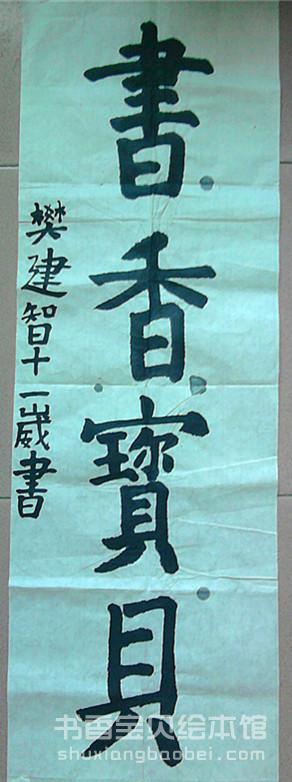 書香寶貝
樊建智十一嵗書
书香宝贝绘本馆
shuxiangbaobei.com